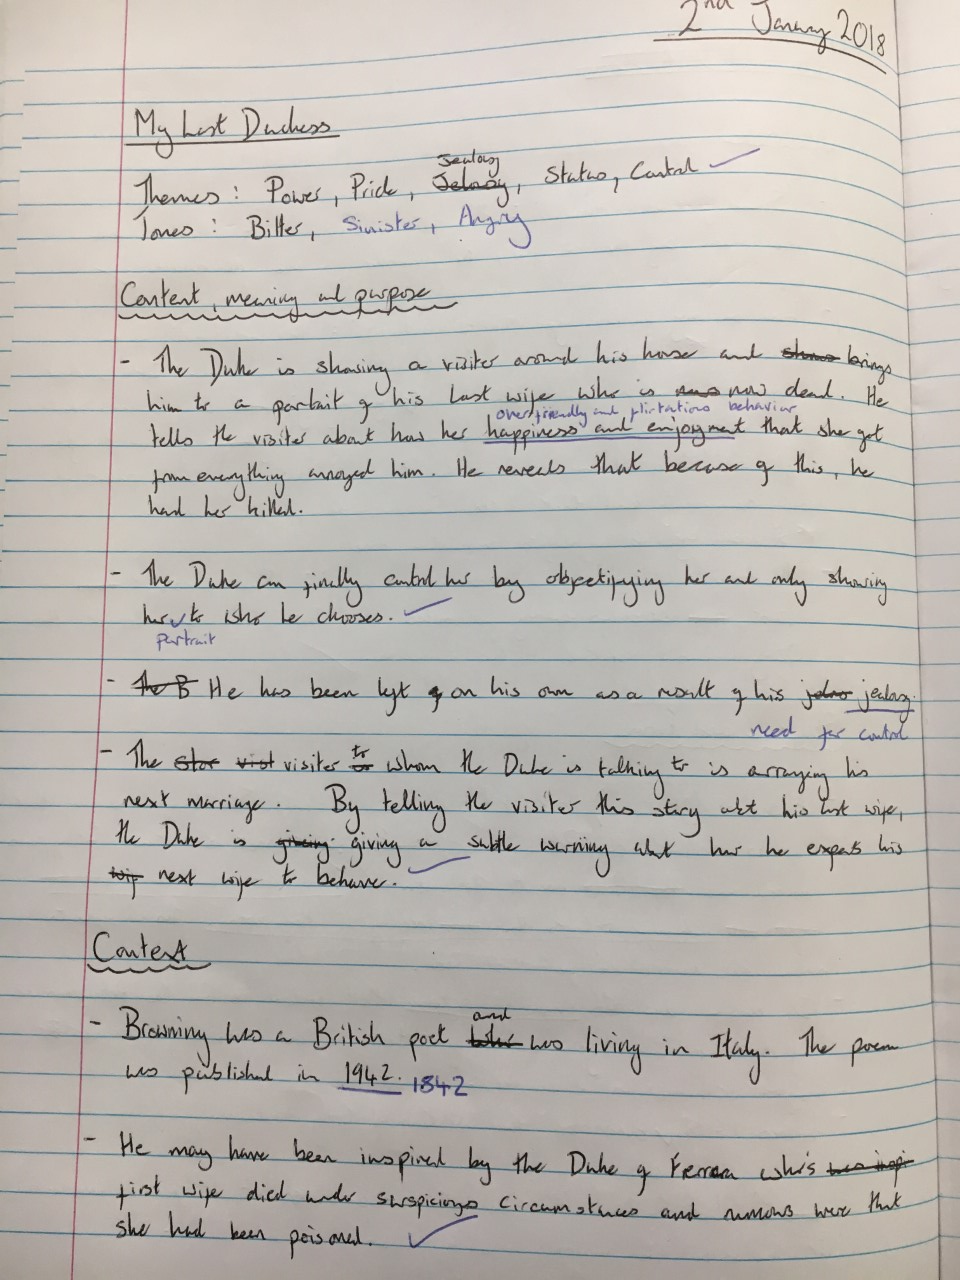 2nd January 2018
My Last Duchess
Jealousy
Themes: Power, Pride, Jelousy, Status, Control
Tones: Bitter, Sinister, Angry
Content, meaning and purpose
- The Duke is showing a visiter around his house and shows brings
him to a portrait of his last wife who is now dead. He
over friendly and flirtatious behaviour
tells the visiter about how her happiness and enjoyment that she got
from everything annoyed him. He reveals that because of this, he
had her killed.
- The Duke can finally control her by objectifying her and only showing
her to who he chooses.
portrait
- The B He has been left on his own as a result of his jealousy.
need for control
to
- The visiter whom the Duke is talking to is arranging his
next marriage. By telling the visiter this story about his last wife,
the Duke is giving giving a subtle warning about how he expects his
wif next wife to behave.
Context
and
- Browning was a British poet who was living in Italy. The poem
was published in 1942. 1842
- He may have been inspired by the Duke of Ferrara who's was inspi
first wife died under suspicious circumstances and rumours were that
she had been poisoned.